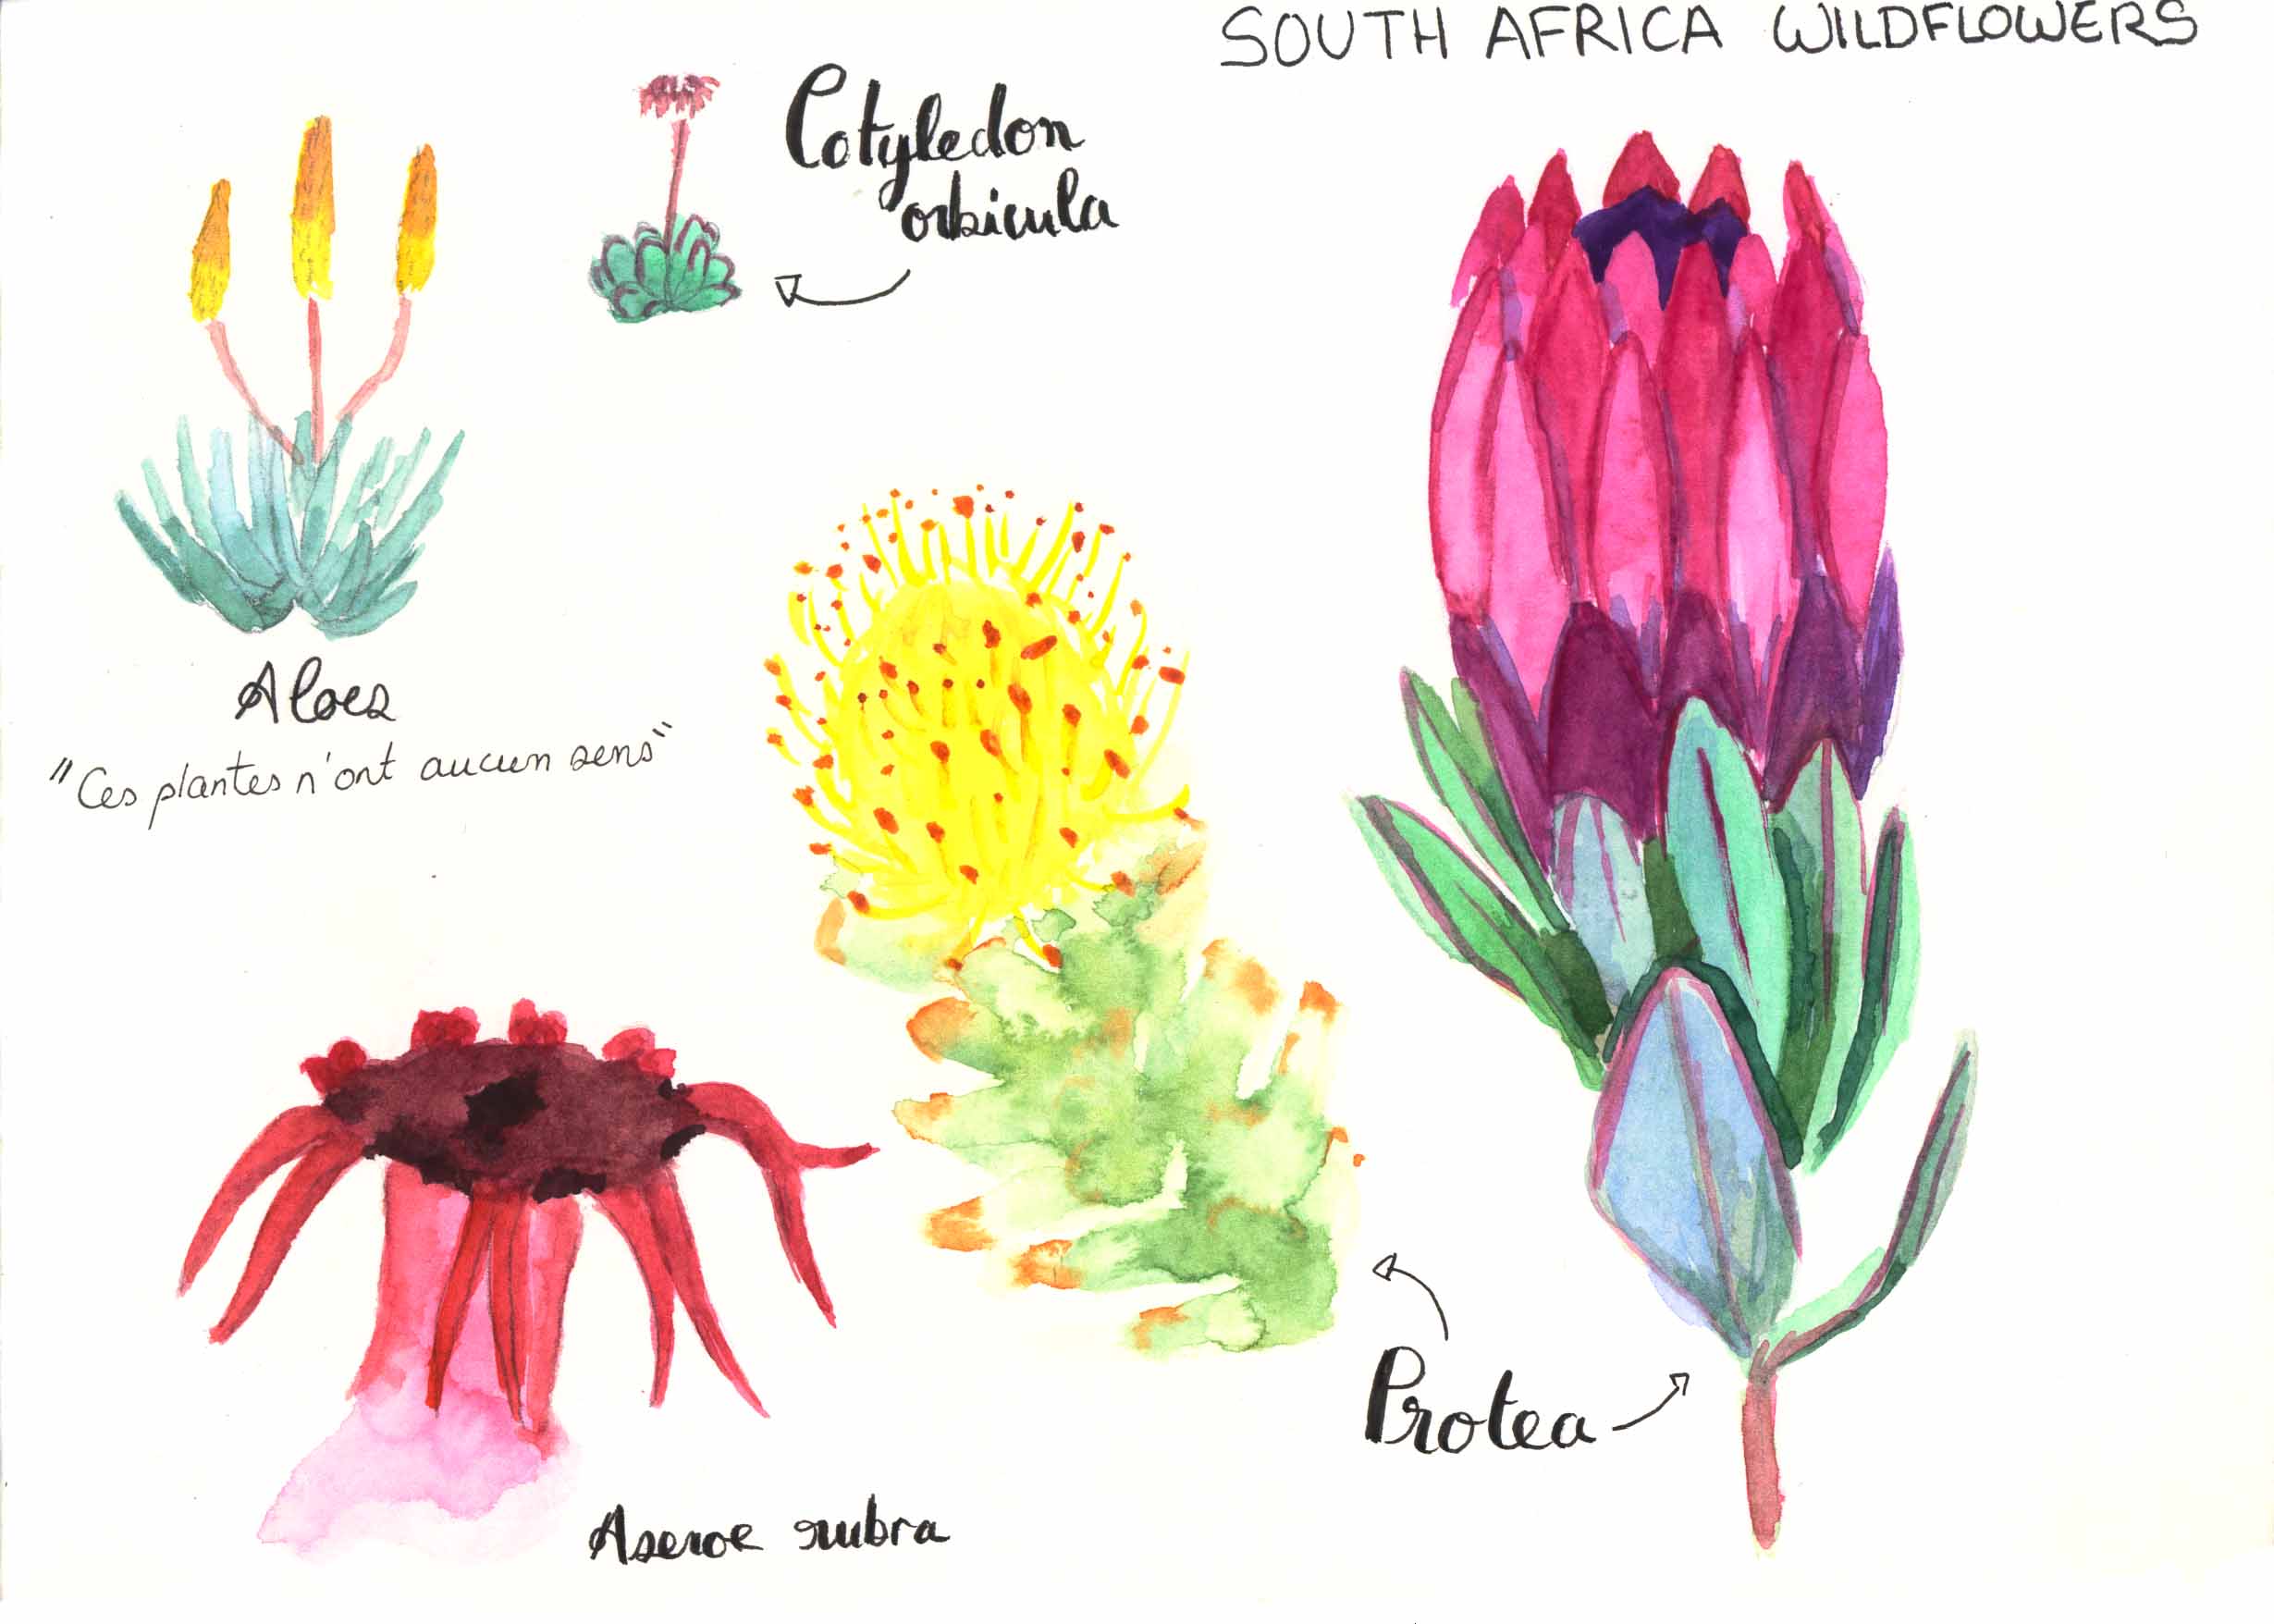 SOUTH AFRICA WILDFLOWERS
Cotyledon
orbicula
Aloes
"Ces plantes n'ont aucun sens"
Protea
Aseroe rubra